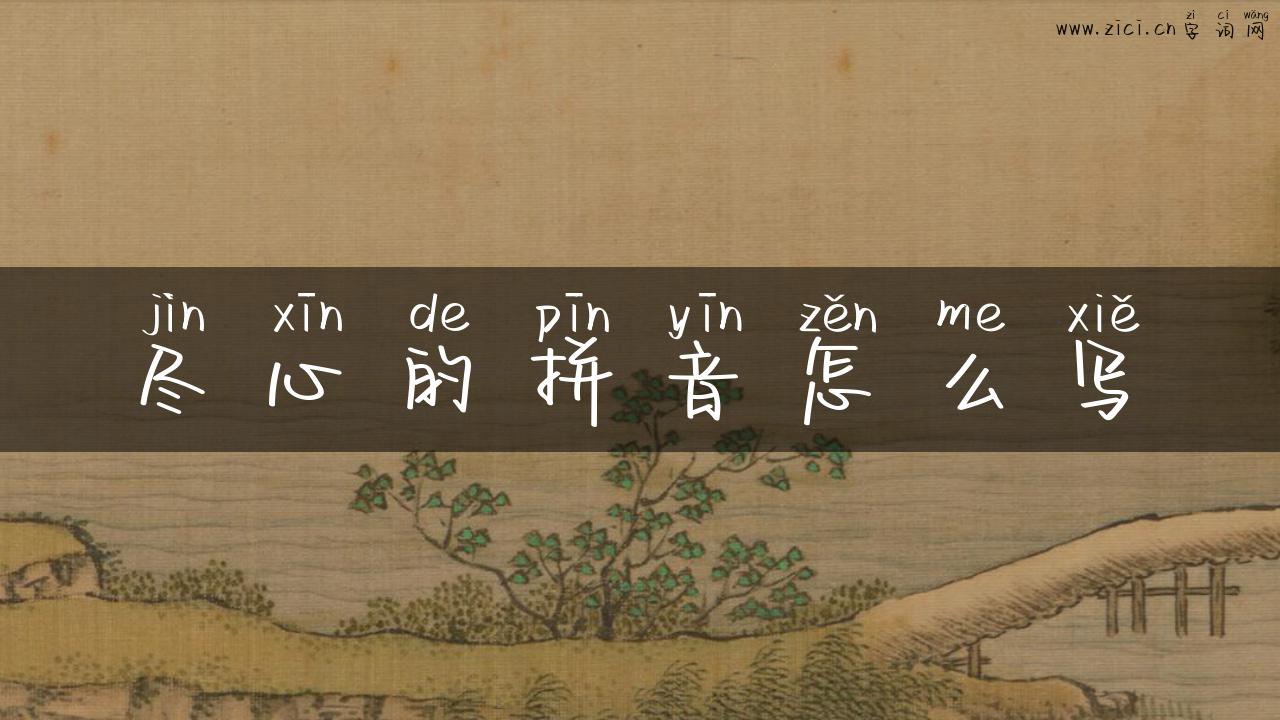 zì cí wǎng
www.zici.cn 字词网
jìn xīn de pīn yīn zěn me xiě
尽心的拼音怎么写